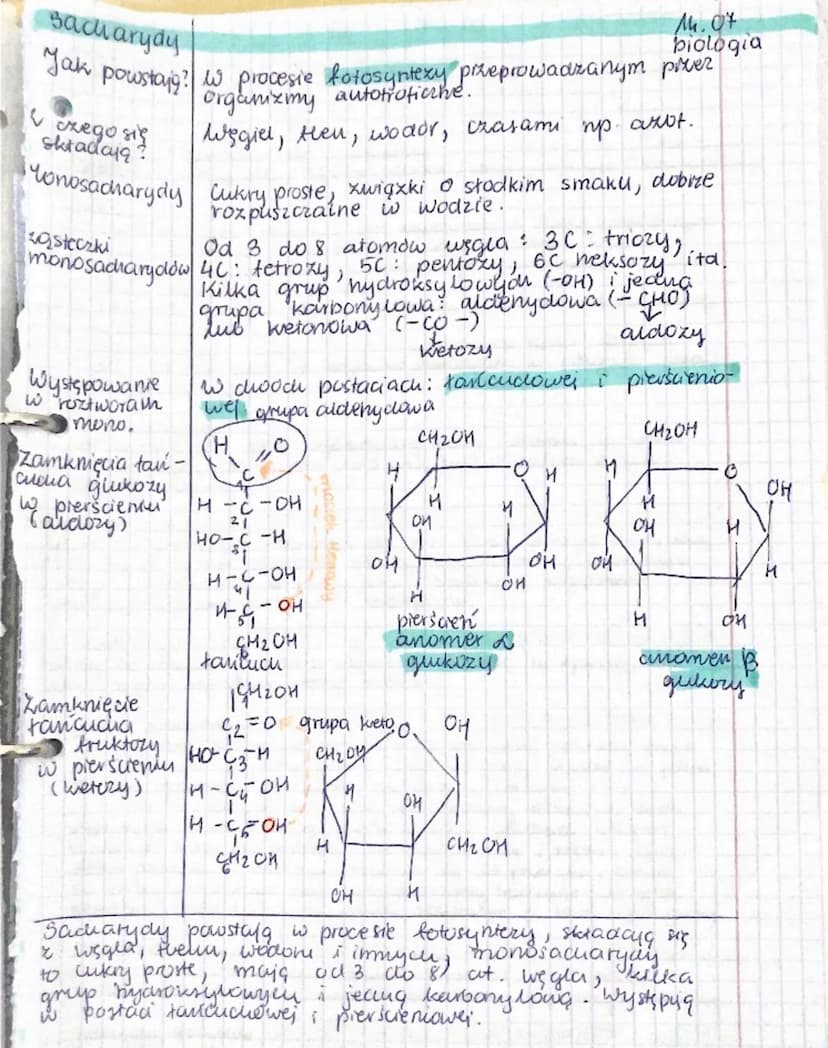 Sacharydy
14.07
biologia
Jak powstają?
W procesie fotosyntezy przeprowadzanym przez
organizmy autotroficzne.
z czego się
składają?
Węgiel, tlen, wodór, czasami np. azot.
Monosacharydy
Cukry proste, związki o słodkim smaku, dobrze
rozpuszczalne w wodzie.
cząsteczki
monosacharydów
Od 3 do 8 atomów węgla: 3C: triozy,
4C: tetrozy, 5C: pentozy, 6C heksozy itd.
Kilka grup hydroksylowych (-OH) i jedna
grupa karbonylowa: aldehydowa (-CHO)
lub ketonowa (-CO-)
↓ aldozy
↓ ketozy
Występowanie
w roztworach
mono.
W dwóch postaciach: łańcuchowej i pierścienio-
wej
grupa aldehydowa
Zamknięcia łań-
cucha glukozy
w pierścieniu
(aldozy)
H O
C
1
H-C-OH
2
HO-C-H
3
H-C-OH
4
H-C-OH
5
CH2OH
6
łańcuch
CH2OH
H O H
H
OH H
OH OH
H OH
pierścień
anomer α
glukozy
CH2OH
H O OH
H
OH H
OH H
H OH
anomer β
glukozy
Zamknięcie
łańcucha
fruktozy
w pierścieniu
(ketozy)
1CH2OH
C2=O grupa keto
HO-C3-H
H-C4-OH
H-C5-OH
CH2OH
6
O OH
CH2OH
H OH
H CH2OH
OH H
Sacharydy powstają w procesie fotosyntezy, składają się
z węgla, tlenu, wodoru i innych, monosacharydy
to cukry proste, mają od 3 do 8 at. węgla, kilka
grup hydroksylowych i jedną karbonylową. Występują
w postaci łańcuchowej i pierścieniowej.